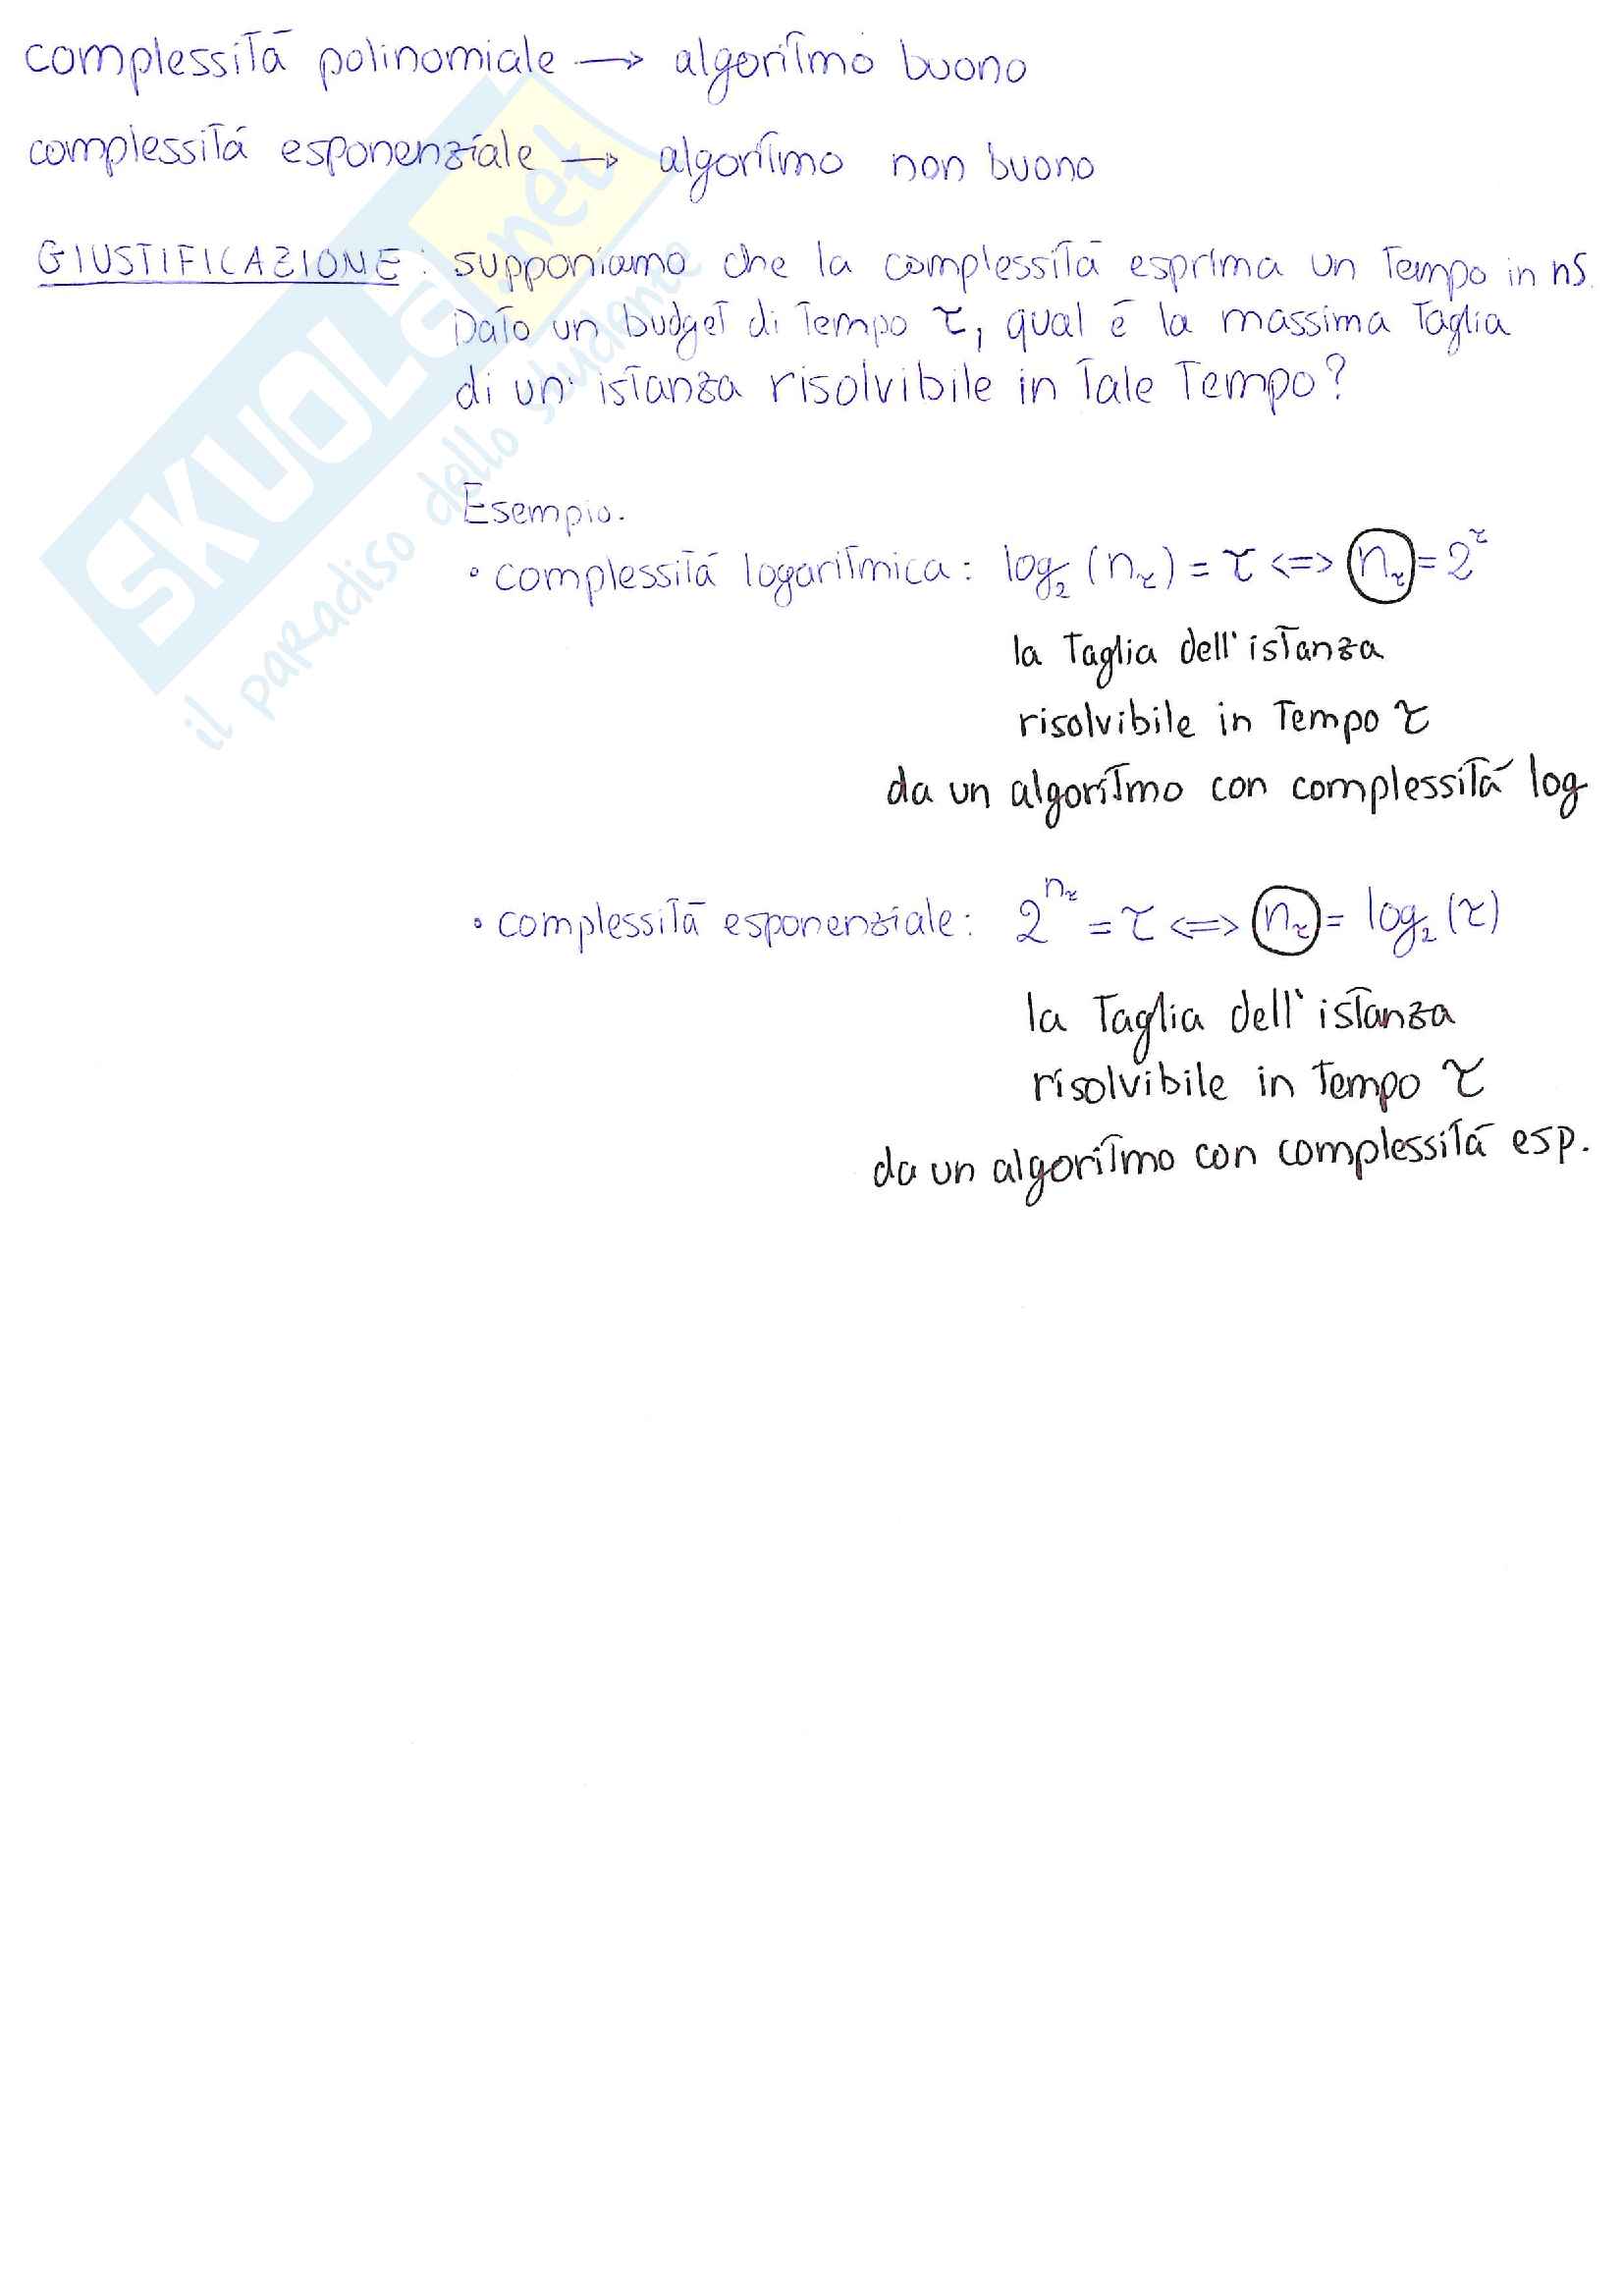 complessità polinomiale → algoritmo buono
complessità esponenziale → algoritmo non buono
GIUSTIFICAZIONE: supponiamo che la complessità esprima un tempo in ns.
Dato un budget di tempo τ, qual è la massima taglia
di un' istanza risolvibile in tale tempo?
Esempio.
• complessità logaritmica: log₂ (n_τ) = τ <=> n_τ = 2^τ
la taglia dell'istanza
risolvibile in tempo τ
da un algoritmo con complessità log
• complessità esponenziale: 2^(n_τ) = τ <=> n_τ = log₂ (τ)
la taglia dell'istanza
risolvibile in tempo τ
da un algoritmo con complessità esp.
SKUOLA.net
il paradiso dello studente